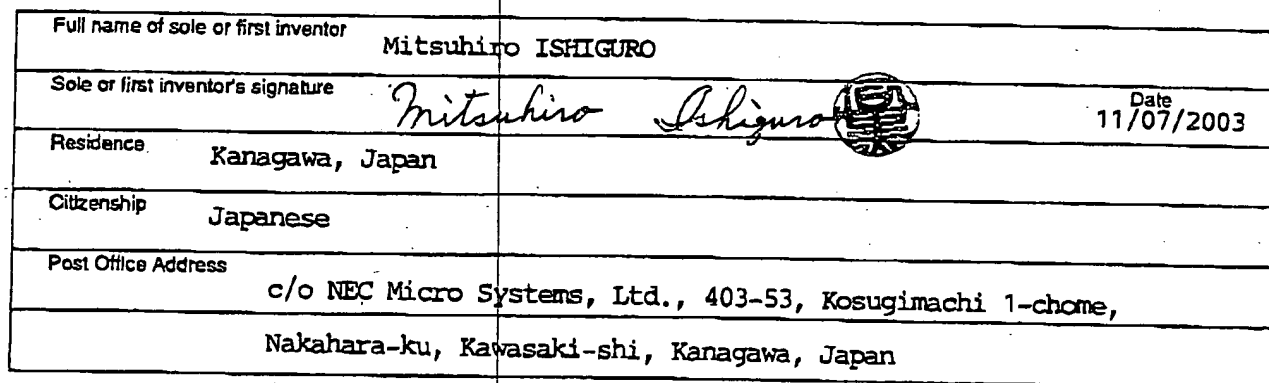 Full name of sole or first inventor
Mitsuhiro ISHIGURO
Sole or first inventor's signature
Mitsuhiro Ishiguro
Date
11/07/2003
Residence
Kanagawa, Japan
Citizenship
Japanese
Post Office Address
c/o NEC Micro Systems, Ltd., 403-53, Kosugimachi 1-chome,
Nakahara-ku, Kawasaki-shi, Kanagawa, Japan